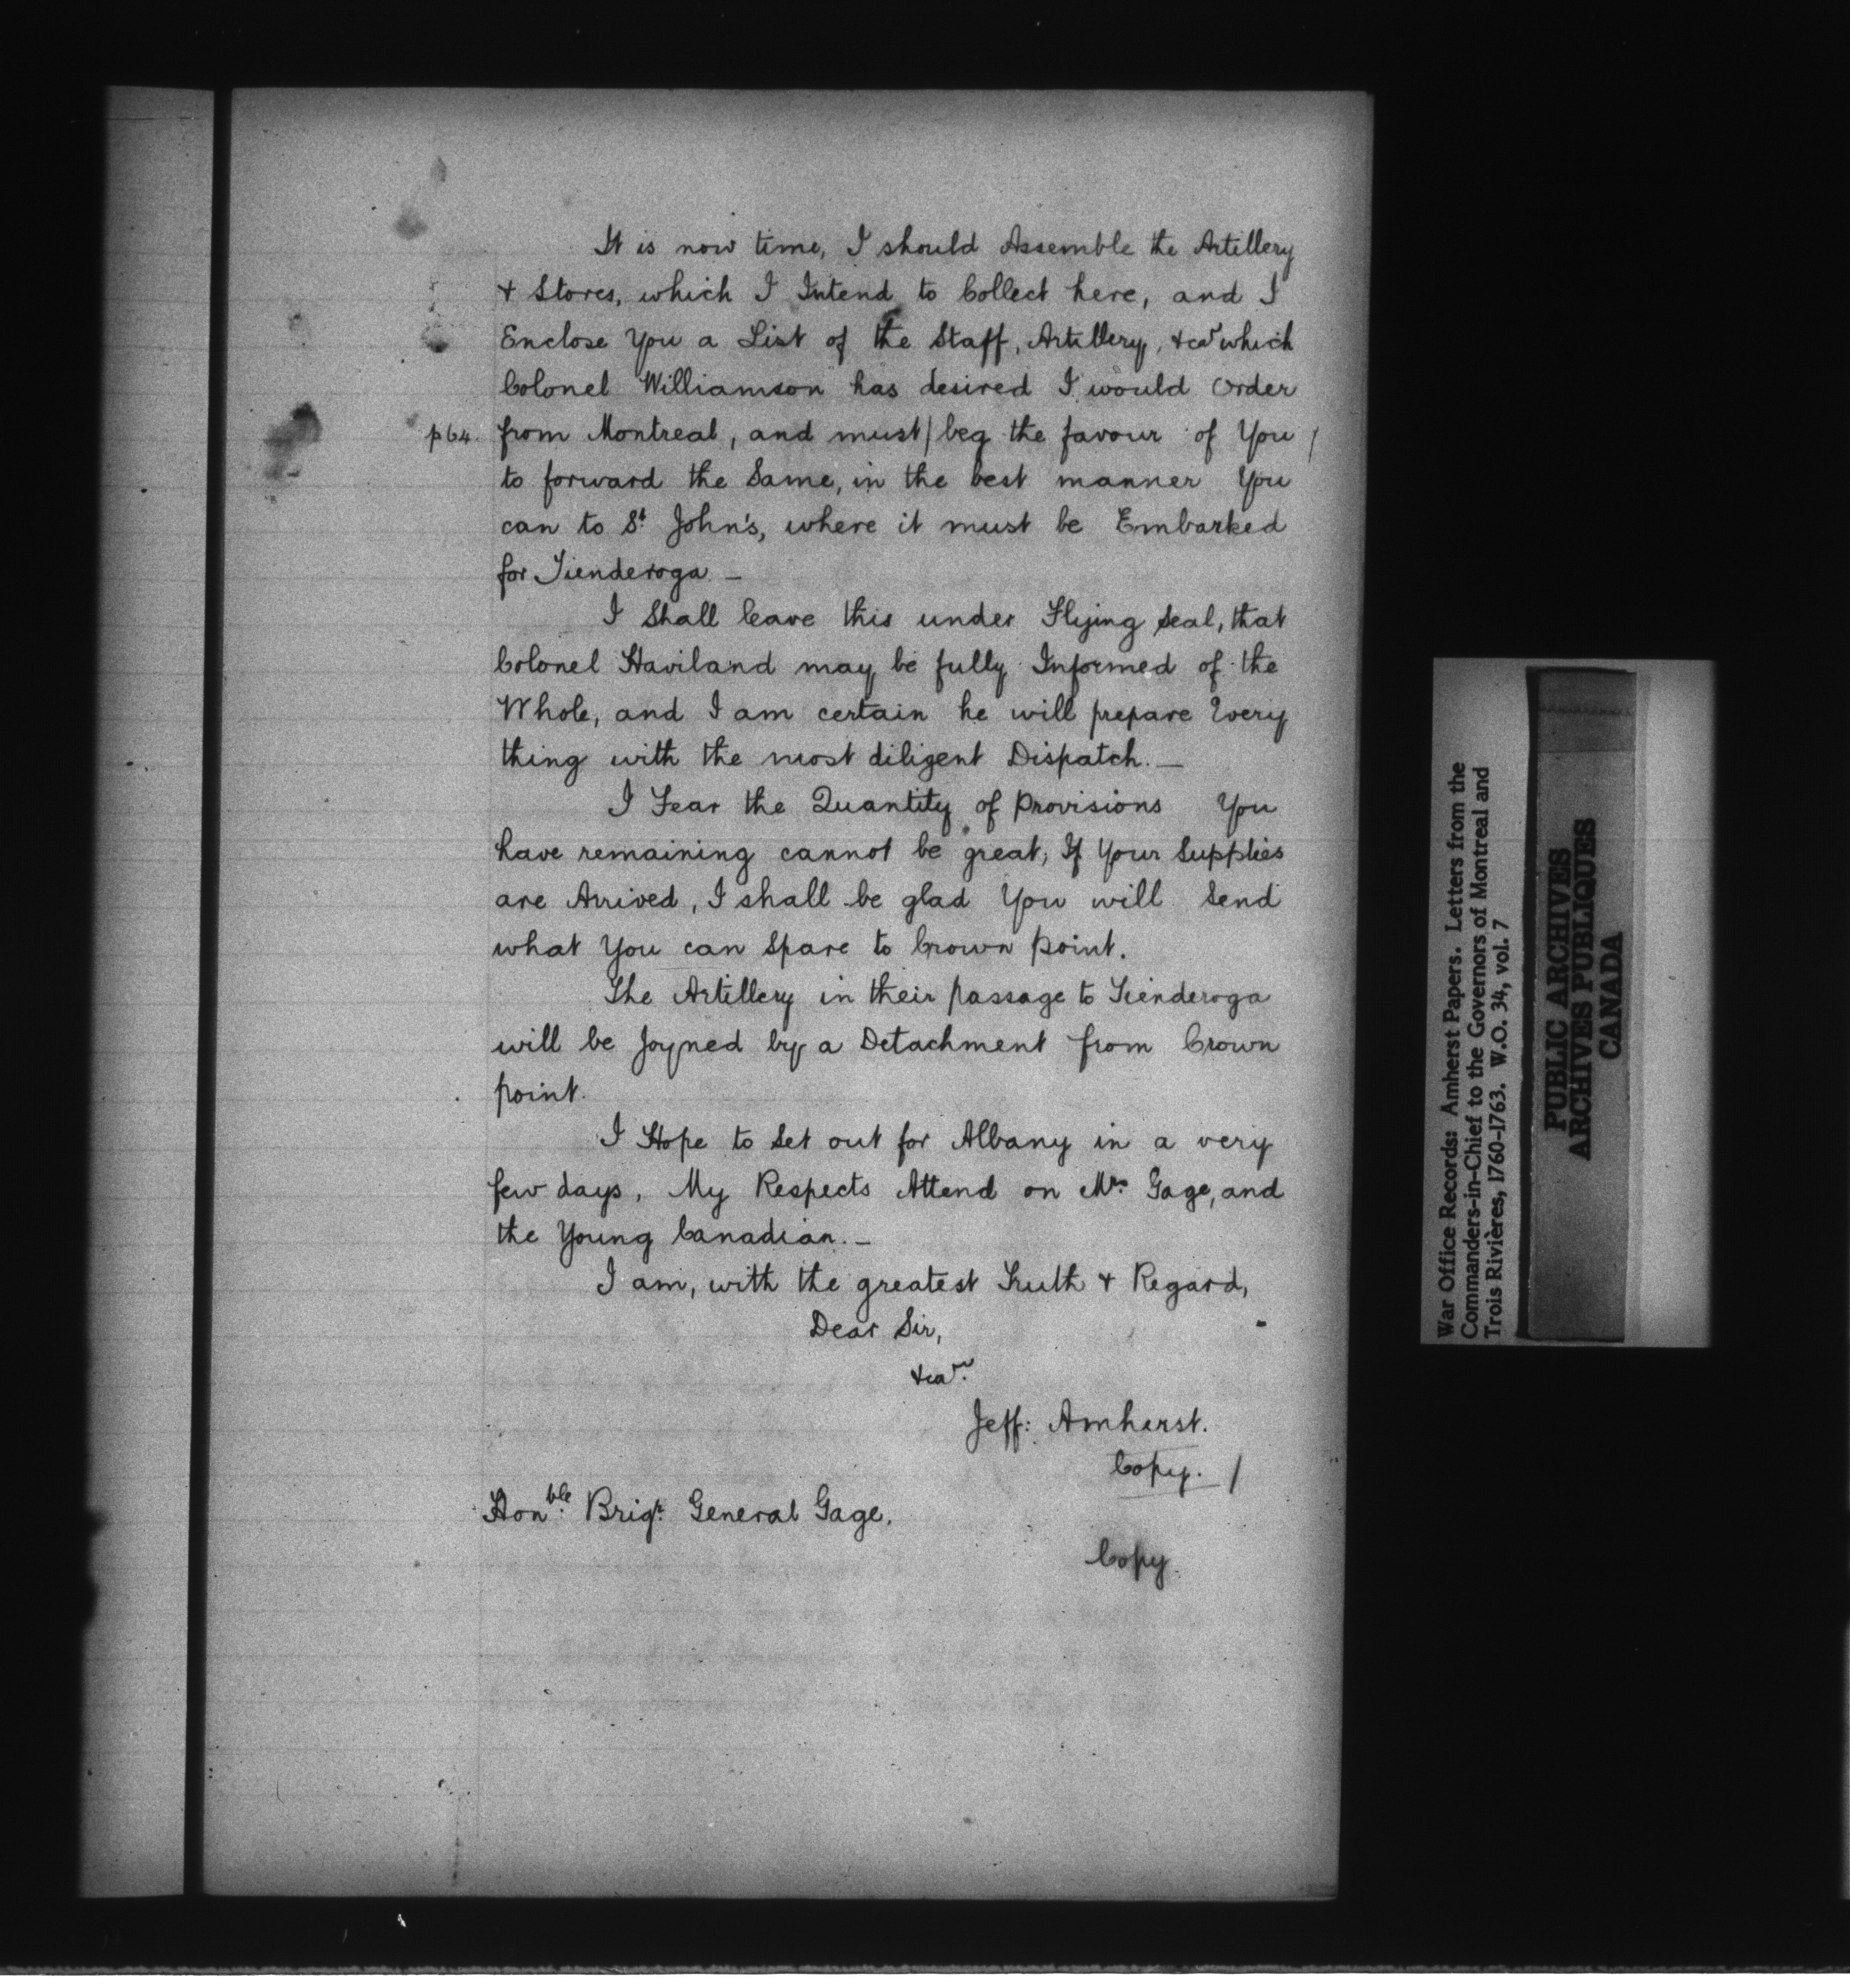 It is now time, I should Assemble the Artillery
& Stores, which I Intend to Collect here, and I
Enclose You a List of the Staff, Artillery, &ca which
Colonel Williamson has desired I would Order
p 64. from Montreal, and must/ beg the favour of You /
to forward the Same, in the best manner You
can to St John's, where it must be Embarked
for Tienderoga —
I Shall leave this under Flying Seal, that
Colonel Haviland may be fully Informed of the
Whole, and I am certain he will prepare Every
thing with the most diligent Dispatch. —
I Fear the Quantity of Provisions You
have remaining cannot be great; If Your Supplies
are Arrived, I shall be glad You will Send
what You can Spare to Crown point.
The Artillery in their passage to Tienderoga
will be Joyned by a Detachment from Crown
point.
I Hope to Set out for Albany in a very
few days, My Respects Attend on Mrs. Gage, and
the Young Canadian. —
I am, with the greatest Truth & Regard,
Dear Sir,
&ca.
Jeff: Amherst.
Copy. /
Honble. Brigr. General Gage.
Copy.
War Office Records: Amherst Papers. Letters from the
Commanders-in-Chief to the Governors of Montreal and
Trois Rivières, 1760-1763. W.O. 34, vol. 7
PUBLIC ARCHIVES
ARCHIVES PUBLIQUES
CANADA